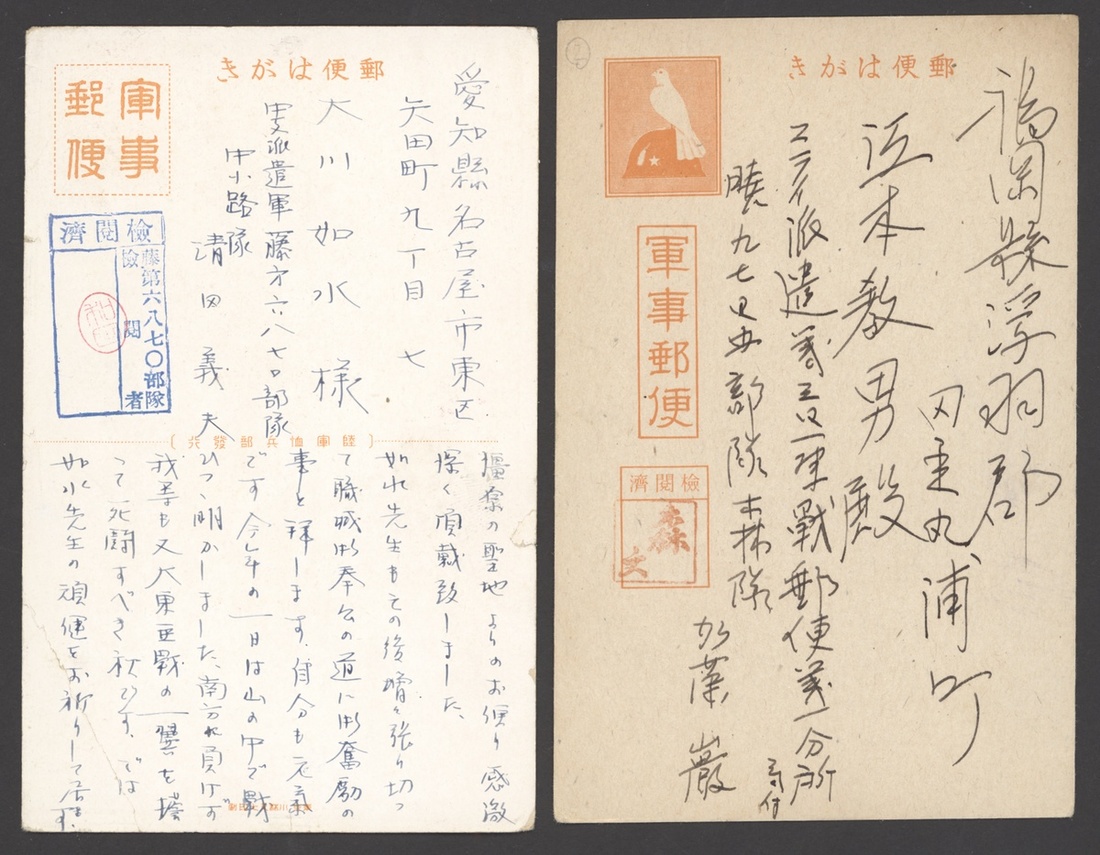 郵便はがき
軍事
郵便
愛知縣名古屋市東区
矢田町九丁目七
大川如水様
中支派遣軍藤第六八七〇部隊
中小路隊
清田義夫
檢閲濟
藤第六八七〇部隊
檢閲者
陸軍恤兵部發行
橿原の聖地よりのお便り感激
深く頂戴致しました、
如水先生もその後増々張り切っ
て職域奉公の道に御奮励の
事と拝します、自分も元気
です 今年の一日は山の中で戰
ひつゝ明かしました、南方に負けず
我等も又大東亜戰の一翼を擔
って死闘すべき秋です、では
如水先生の頑健をお祈りして居ます
郵便はがき
軍事郵便
檢閲濟
森
福岡縣浮羽郡
田主丸浦町
江本教男殿
派遣第
野戰郵便第一分所
気付
暁
部隊森隊
加藤巖